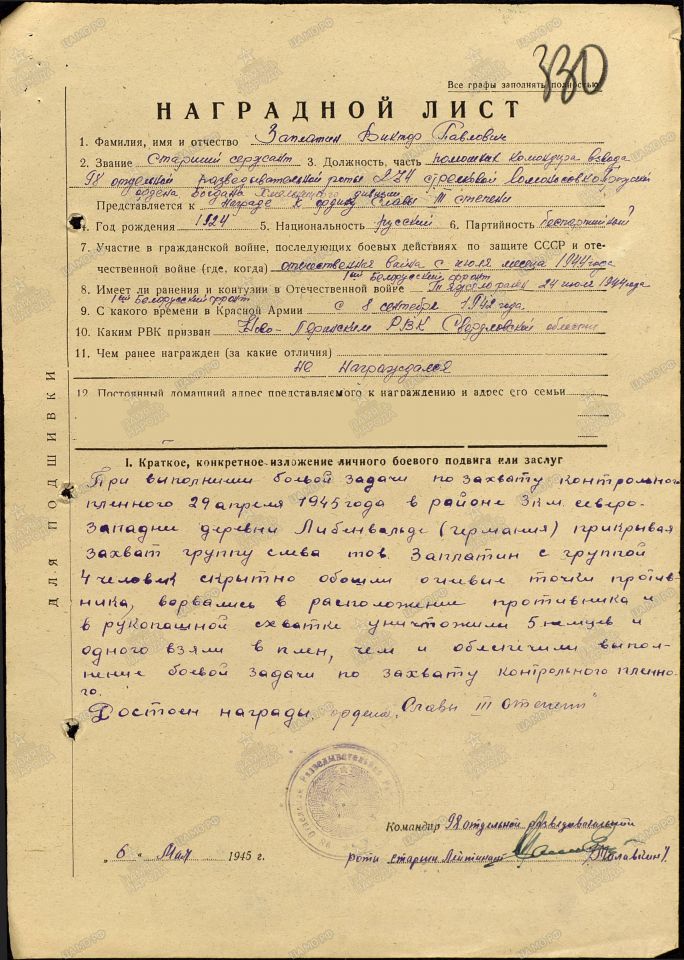 330
Все графы заполнять полностью
НАГРАДНОЙ ЛИСТ
1. Фамилия, имя и отчество Заплатин Виктор Павлович
2. Звание Старший сержант 3. Должность, часть помощник командира взвода
98 отдельной разведывательной роты 274 стрелковой
ордена Богдана Хмельницкого дивизии
Представляется к награде к ордену Славы III степени
4. Год рождения 1924 5. Национальность русский 6. Партийность беспартийный
7. Участие в гражданской войне, последующих боевых действиях по защите СССР и оте-
чественной войне (где, когда) отечественная война с июля месяца 1944 года
1ый Белорусский фронт
8. Имеет ли ранения и контузии в Отечественной войне 24 июля 1944 года
1ый Белорусский фронт
9. С какого времени в Красной Армии с 8 сентября 1942 года.
10. Каким РВК призван Ново-Лялинским РВК Свердловской области
11. Чем ранее награжден (за какие отличия)
не награждался
12. Постоянный домашний адрес представляемого к награждению и адрес его семьи
ДЛЯ ПОДШИВКИ
I. Краткое, конкретное изложение личного боевого подвига или заслуг
При выполнении боевой задачи по захвату контрольного
пленного 29 апреля 1945 года в районе 3 км. северо-
западни деревни Либенвальде (германия) прикрывая
захват группу слева тов. Заплатин с группой
4 человек скрытно обошли огневые точки против-
ника, ворвались в расположение противника и
в рукопашной схватке уничтожили 5 немцев и
одного взяли в плен, чем и облегчили выпол-
нение боевой задачи по захвату контрольного пленно-
го.
Достоен награды ордена „Славы III степени"
Командир 98 отдельной разведывательной
„6" Мая 1945 г.
роты старший лейтенант